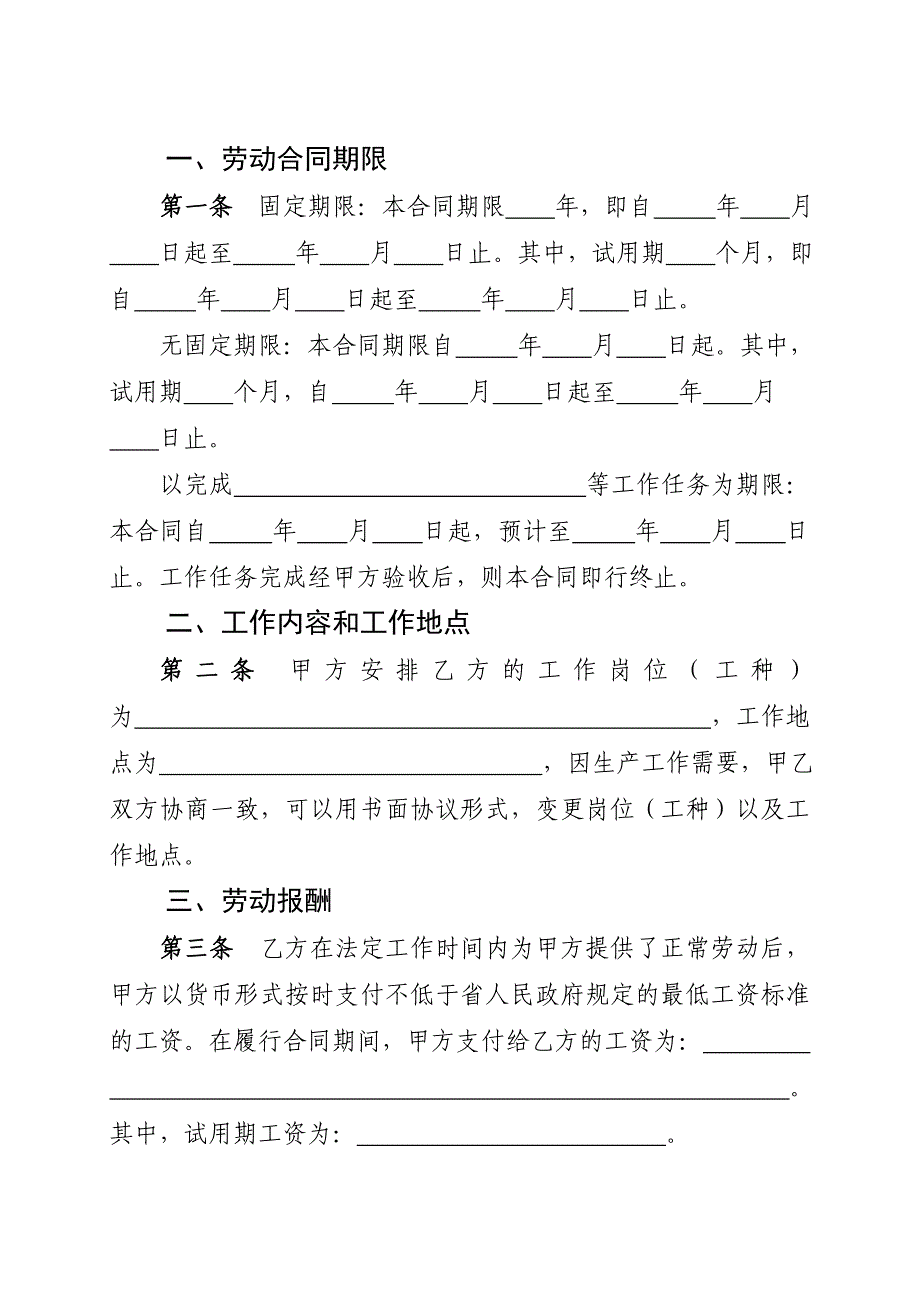 一、劳动合同期限
第一条 固定期限：本合同期限____年，即自_____年____月
____日起至_____年____月____日止。其中，试用期____个月，即
自_____年____月____日起至_____年____月____日止。
无固定期限：本合同期限自_____年____月____日起。其中，
试用期____个月，自_____年____月____日起至_____年____月
____日止。
以完成____________________________等工作任务为期限：
本合同自_____年____月____日起，预计至_____年____月____日
止。工作任务完成经甲方验收后，则本合同即行终止。
二、工作内容和工作地点
第二条 甲方安排乙方的工作岗位（工种）
为______________________________________________，工作地
点为______________________________，因生产工作需要，甲乙
双方协商一致，可以用书面协议形式，变更岗位（工种）以及工
作地点。
三、劳动报酬
第三条 乙方在法定工作时间内为甲方提供了正常劳动后，
甲方以货币形式按时支付不低于省人民政府规定的最低工资标准
的工资。在履行合同期间，甲方支付给乙方的工资为：_________
______________________________________________________。
其中，试用期工资为：_________________________。